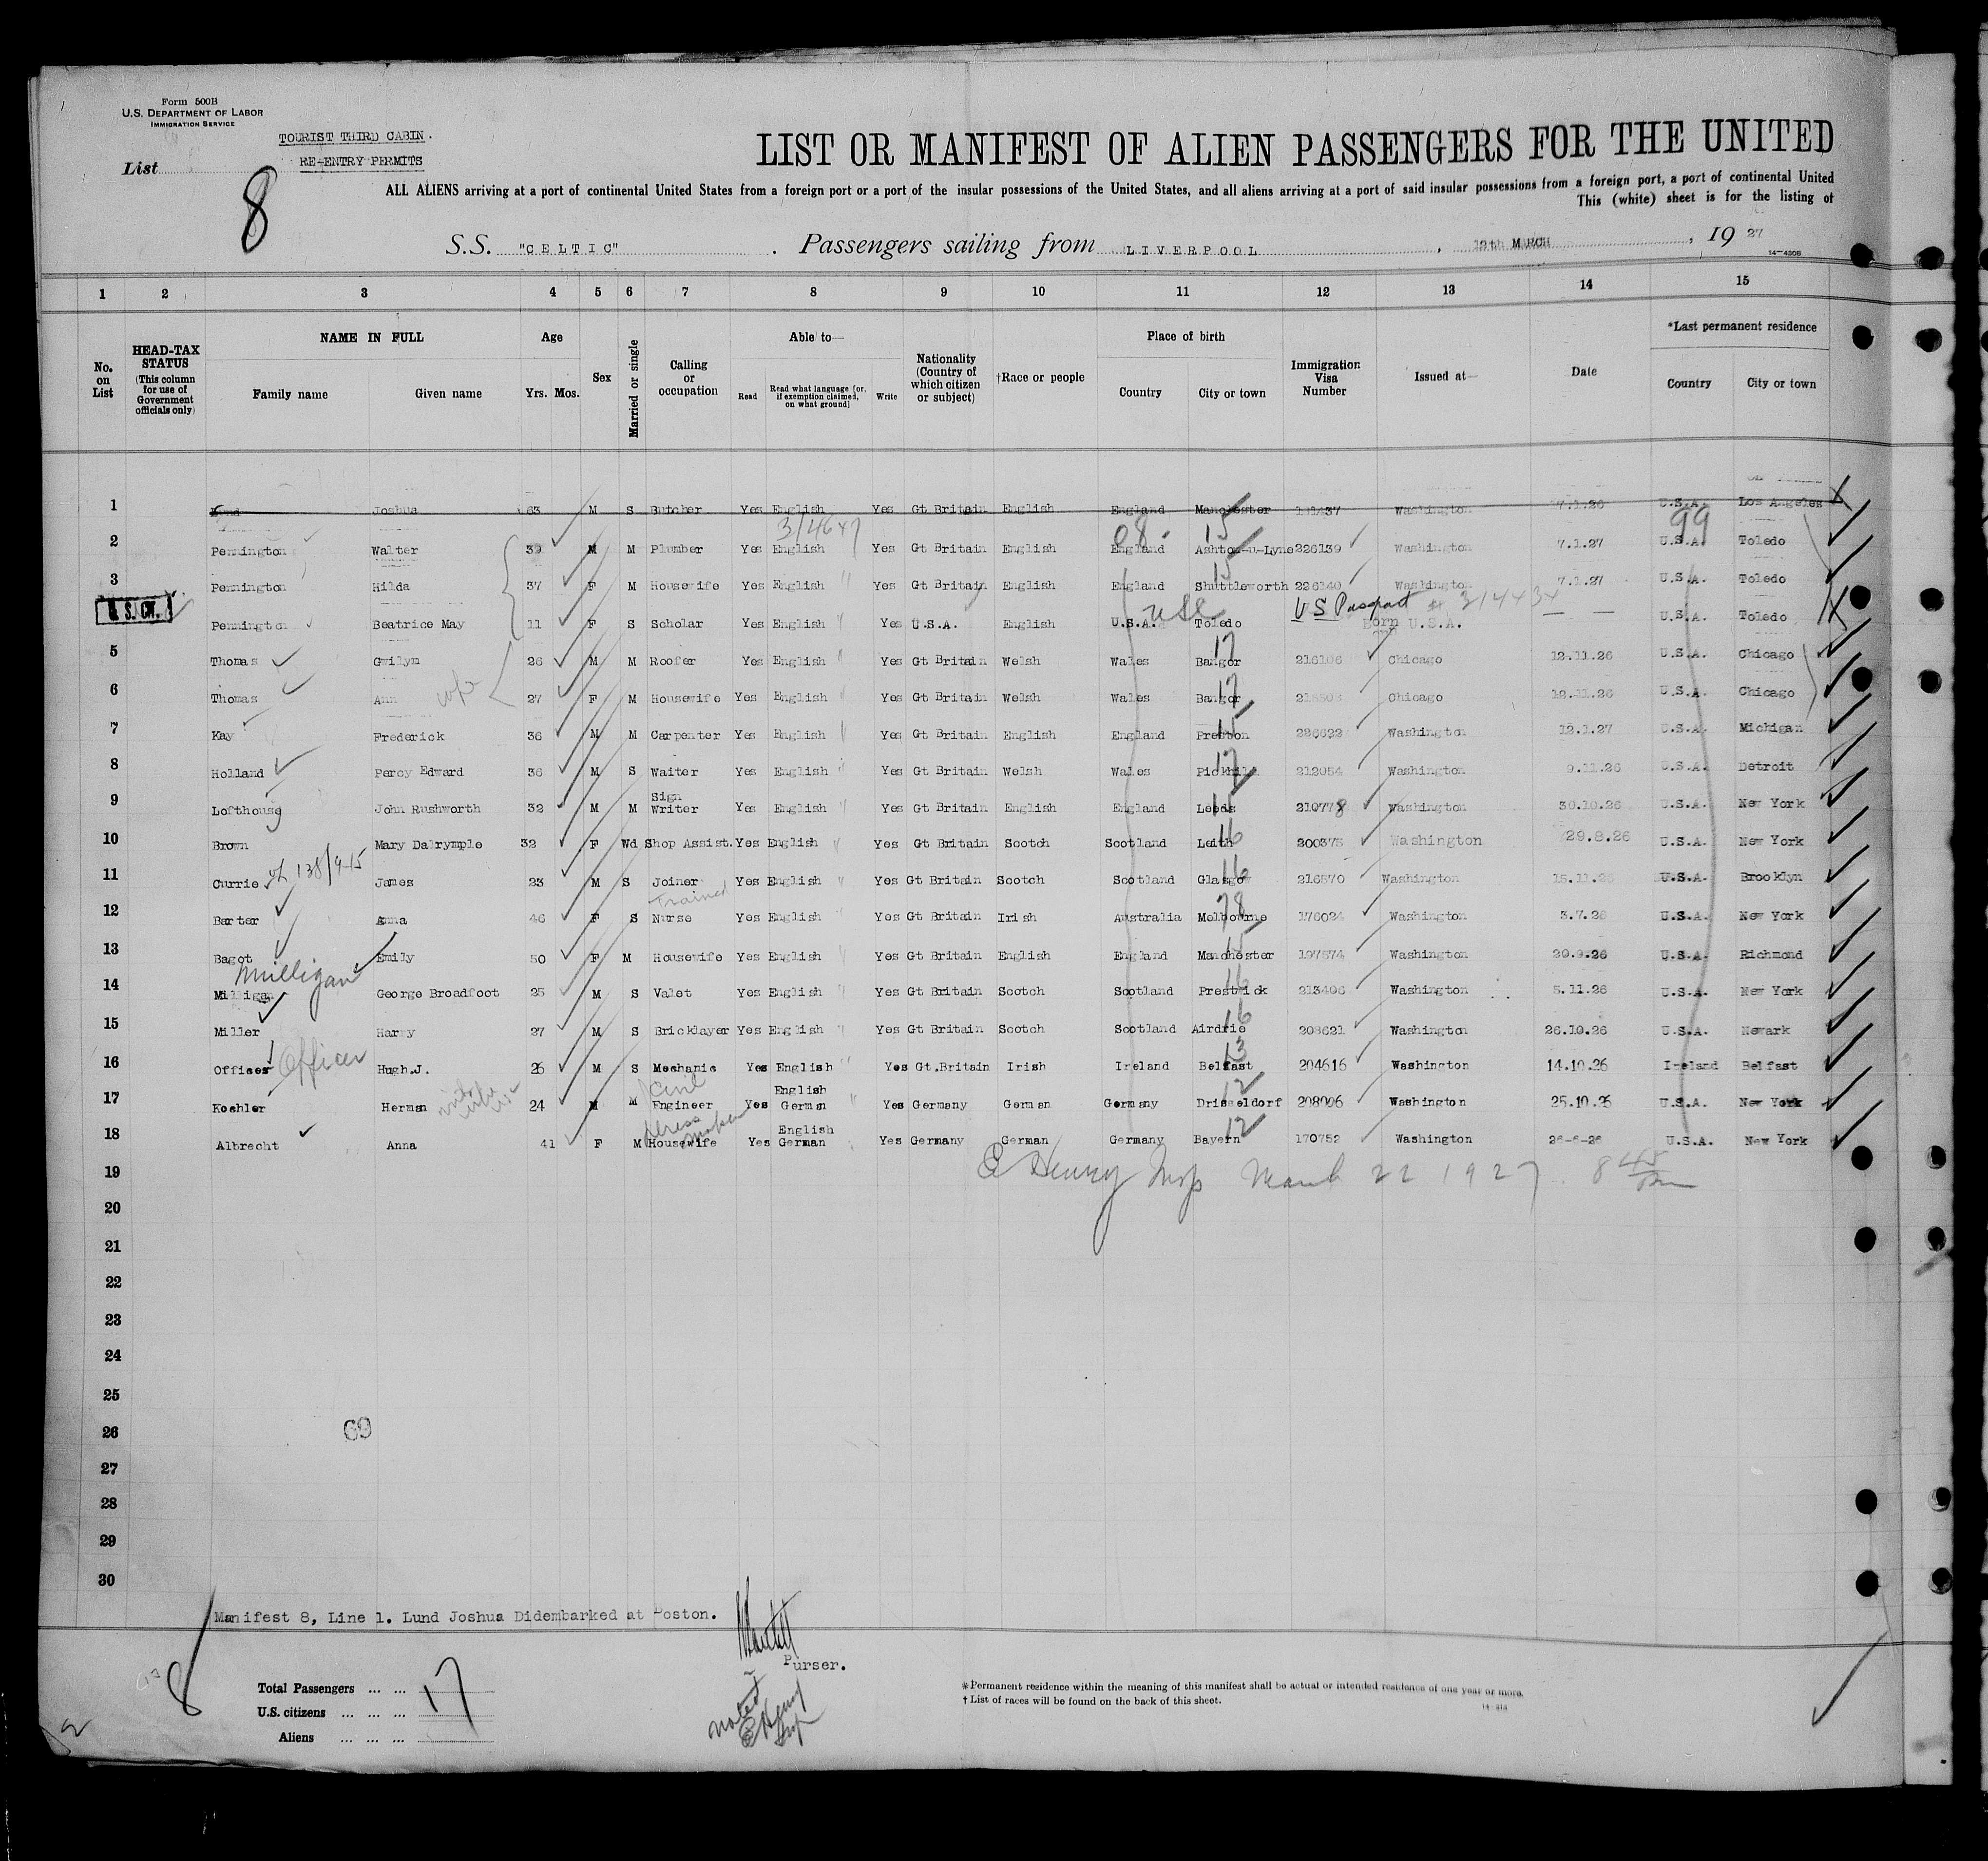 Form 500B
U.S. DEPARTMENT OF LABOR
IMMIGRATION SERVICE
TOURIST THIRD CABIN.
RE-ENTRY PERMITS
List
8
LIST OR MANIFEST OF ALIEN PASSENGERS FOR THE UNITED
ALL ALIENS arriving at a port of continental United States from a foreign port or a port of the insular possessions of the United States, and all aliens arriving at a port of said insular possessions from a foreign port, a port of continental United
This (white) sheet is for the listing of
S.S. "CELTIC" . Passengers sailing from LIVERPOOL , 12th MARCH , 19 27
14—430B
1 2 3 4 5 6 7 8 9 10 11 12 13 14 15
No. on List
HEAD-TAX STATUS (This column for use of Government officials only)
NAME IN FULL
Family name Given name
Age
Yrs. Mos.
Sex
Married or single
Calling or occupation
Able to—
Read Read what language [or, if exemption claimed, on what ground] Write
Nationality (Country of which citizen or subject)
†Race or people
Place of birth
Country City or town
Immigration Visa Number
Issued at—
Date
*Last permanent residence
Country City or town
1 Joshua 63 M S Butcher Yes English Yes Gt Britain English England Manchester Washington 7.1.26 U.S.A. Los Angeles
3/4647 08 15 99
2 Pennington Walter 39 M M Plumber Yes English Yes Gt Britain English England Ashton-u-Lyne 226139 Washington 7.1.27 U.S.A. Toledo
15
3 Pennington Hilda 37 F M Housewife Yes English Yes Gt Britain English England Shuttleworth 226140 Washington 7.1.27 U.S.A. Toledo
U.S. CIT. US Passport
Pennington Beatrice May 11 F S Scholar Yes English Yes U.S.A. English U.S.A. Toledo Born U.S.A. — — U.S.A. Toledo
17
5 Thomas Gwilym 26 M M Roofer Yes English Yes Gt Britain Welsh Wales Bangor 216106 Chicago 12.11.26 U.S.A. Chicago
6 Thomas Ann wife 27 F M Housewife Yes English Yes Gt Britain Welsh Wales Bangor 17 Chicago 12.11.26 U.S.A. Chicago
7 Kay Frederick 36 M M Carpenter Yes English Yes Gt Britain English England Preston 226622 Washington 12.1.27 U.S.A. Michigan
8 Holland Percy Edward 36 M S Waiter Yes English Yes Gt Britain Welsh Wales 17 212054 Washington 9.11.26 U.S.A. Detroit
Sign
9 Lofthouse John Rushworth 32 M M Writer Yes English Yes Gt Britain English England Leeds 210778 Washington 30.10.26 U.S.A. New York
10 Brown Mary Dalrymple 32 F Wd Shop Assist. Yes English Yes Gt Britain Scotch Scotland Leith 16 200375 Washington 29.8.26 U.S.A. New York
11 Currie James 23 M S Joiner Yes English Yes Gt Britain Scotch Scotland Glasgow 16 216570 Washington 15.11.26 U.S.A. Brooklyn
Trained
12 Barter Anna 46 F S Nurse Yes English Yes Gt Britain Irish Australia Melbourne 78 176024 Washington 3.7.26 U.S.A. New York
13 Bagot Emily 50 F M Housewife Yes English Yes Gt Britain English England Manchester 15 197574 Washington 20.9.26 U.S.A. Richmond
Milligan
14 Milligan George Broadfoot 25 M S Valet Yes English Yes Gt Britain Scotch Scotland Prestwick 16 213406 Washington 5.11.26 U.S.A. New York
15 Miller Harry 27 M S Bricklayer Yes English Yes Gt Britain Scotch Scotland Airdrie 16 208621 Washington 26.10.26 U.S.A. Newark
16 Offiser Officer Hugh.J. 26 M S Mechanic Yes English Yes Gt.Britain Irish Ireland Belfast 13 204616 Washington 14.10.26 Ireland Belfast
Civil English
17 Koehler Herman 24 M M Engineer Yes German Yes Germany German Germany Drisseldorf 12 208006 Washington 25.10.26 U.S.A. New York
Dress maker English
18 Albrecht Anna 41 F M Housewife Yes German Yes Germany German Germany Bayern 12 170752 Washington 26-6-26 U.S.A. New York
E Henry Insp March 22 1927 8 45
19
20
21
22
23
24
25
26 69
27
28
29
30
Manifest 8, Line 1. Lund Joshua Didembarked at Boston.
Purser.
8
Total Passengers ... ... 17
U.S. citizens ... ... ...
Aliens ... ... ...
noted
E Henry
Insp
*Permanent residence within the meaning of this manifest shall be actual or intended residence of one year or more.
†List of races will be found on the back of this sheet.